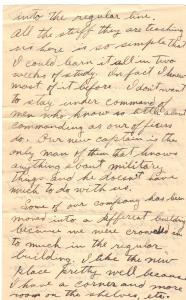 into the regular line.
All the stuff they are teaching
us here is so simple that
I could learn it all in two
weeks of study. In fact I knew
most of it before. I don't want
to stay under command of
men who know so little about
commanding as our officers
do. Our new captain is the
only man of them that knows
anything about military
things and he doesn't have
much to do with us.
Some of our company has been
moved into a different building
because we were crowded
to much in the regular
building. I like the new
place pretty well because
I have a corner and more
room on the shelves, etc.